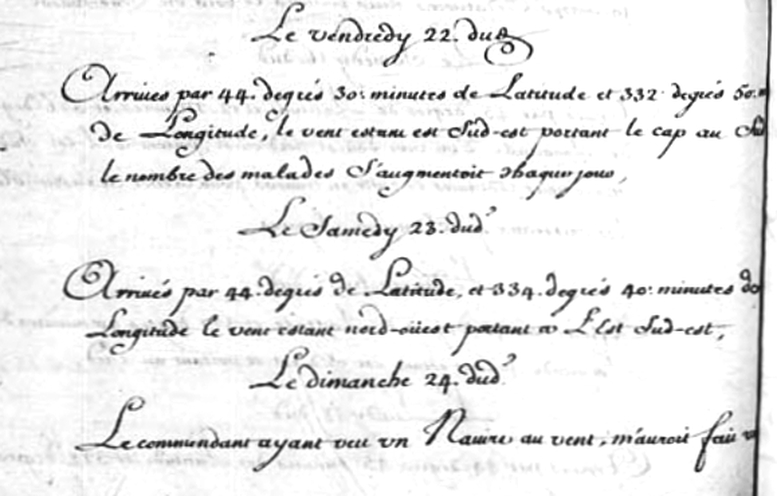 Le vendredy 22. dud.
Arrivés par 44. degrés 30. minutes de Latitude et 332. degrés 50.
de Longitude, le vent estant est Sud-est portant le cap au Sud
le nombre des malades s'augmentoit chaque jour,
Le Samedy 23. dud.
Arrivés par 44. degrés de Latitude, et 334. degrés 40. minutes de
Longitude le vent estant nord-oüest portant a L'Est Sud-est,
Le dimanche 24. dud.
Le commendant ayant veu un Navire au vent, m'auroit fait